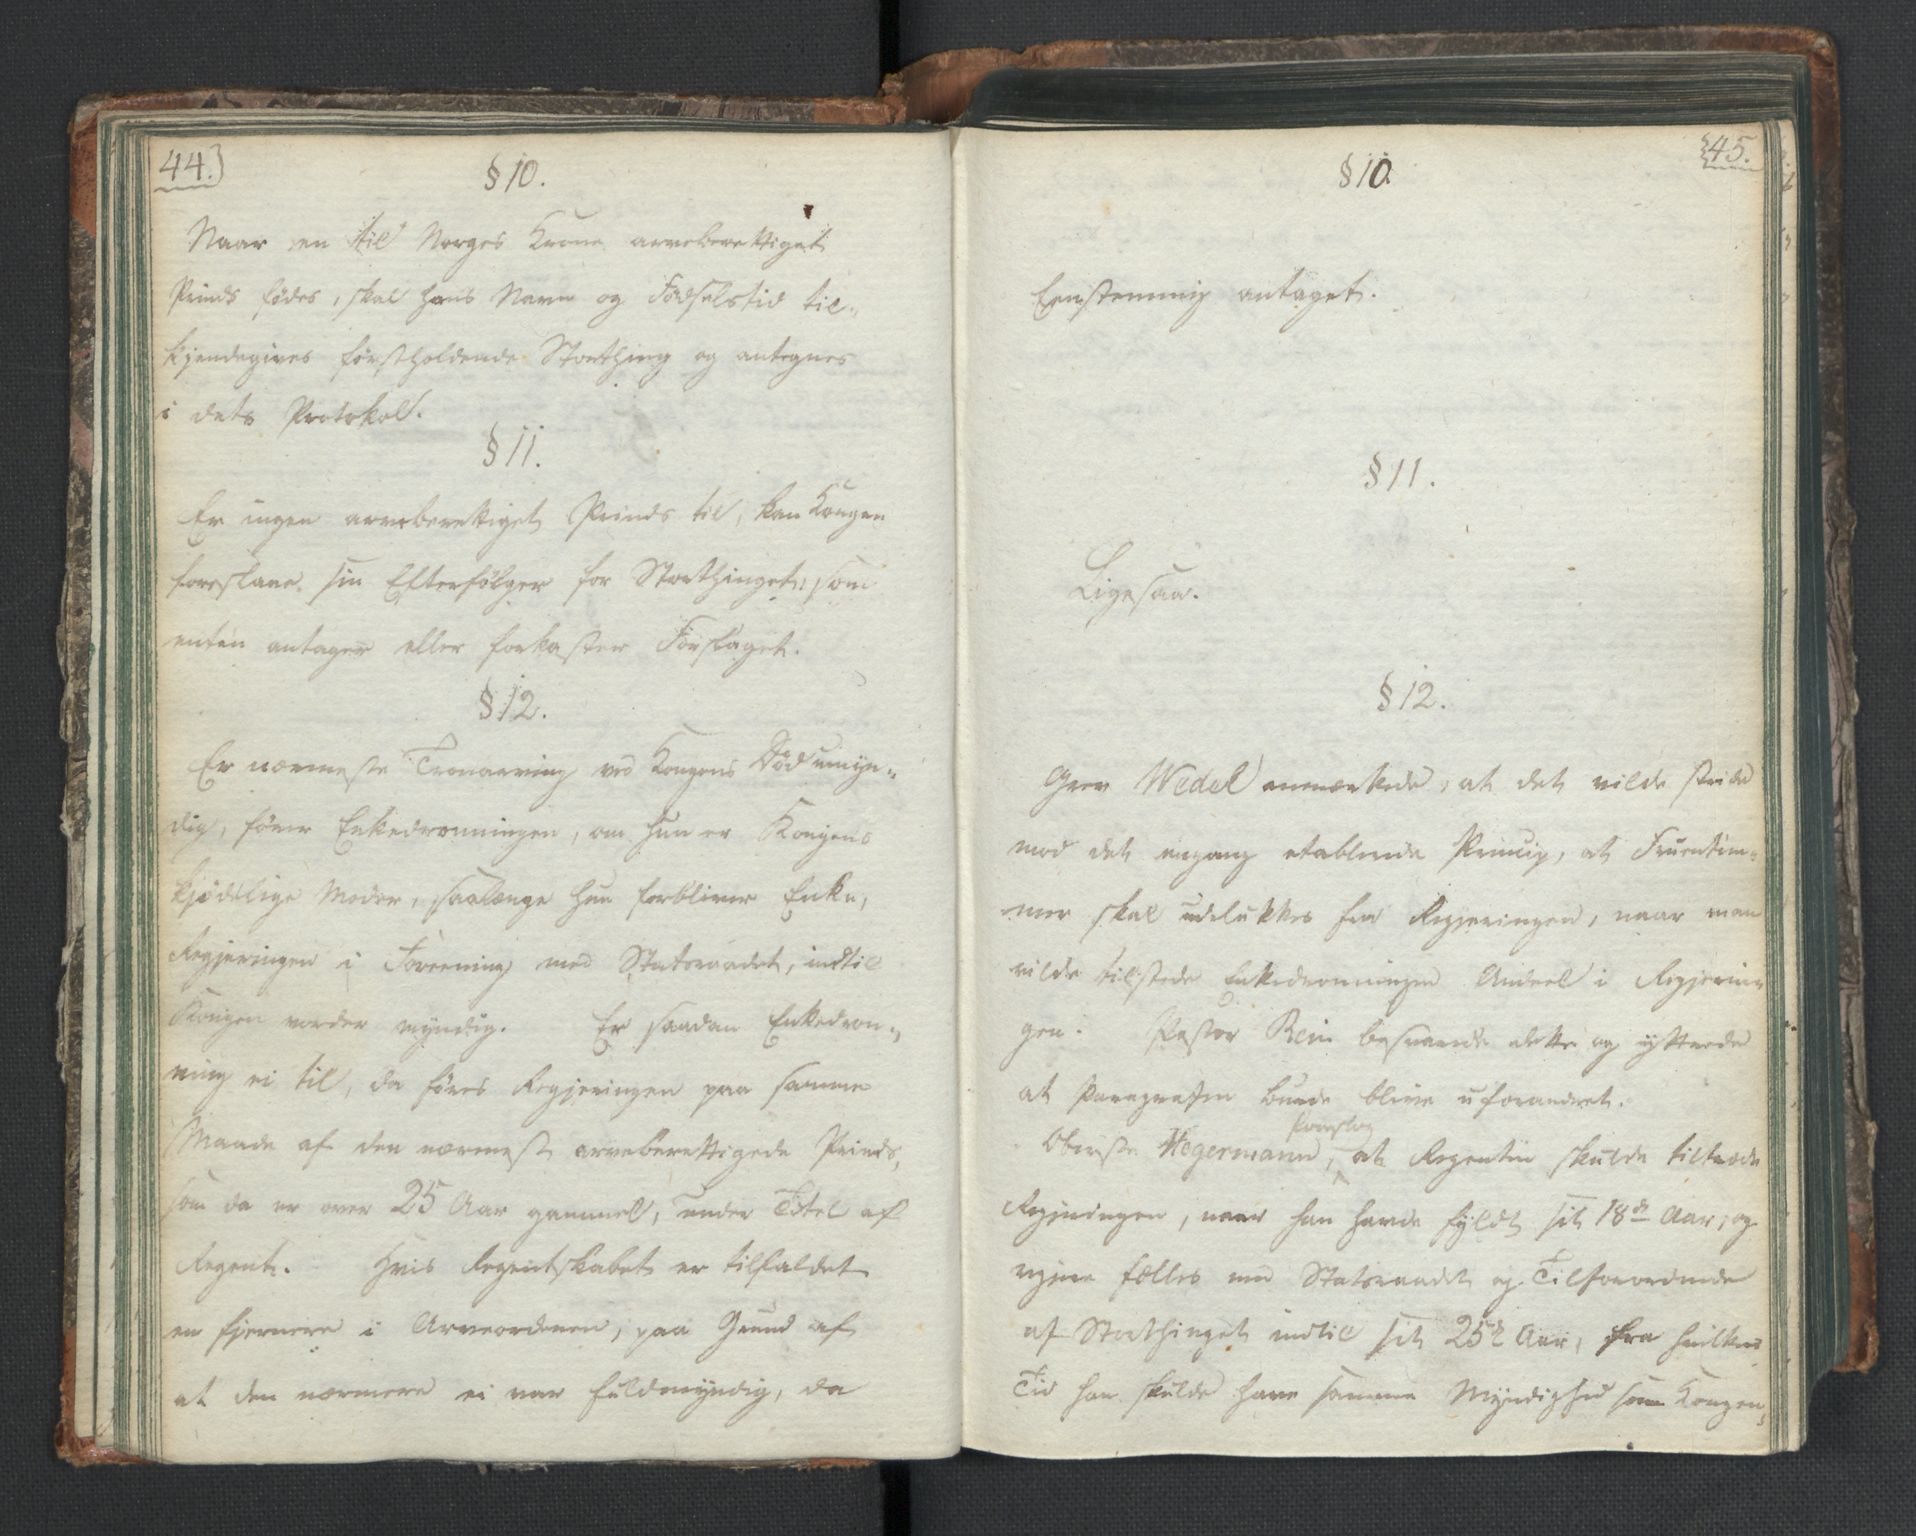 44.)
§ 10.
Naar en til Norges Krone arveberettiget
Prinds fødes, skal hans Navn og Fødselstid til-
kjendegives førstholdende Storthing og antegnes
i dets Protokol.
§ 11.
Er ingen arveberettiget Prinds til, kan Kongen
foreslaae sin Efterfølger for Storthinget, som
enten antager eller forkaster Forslaget.
§ 12.
Er nærmeste Tronarving ved Kongens Død umyn-
dig, fører Enkedronningen, om hun er Kongens
kjødelige Moder, saalænge hun forbliver Enke,
Regjeringen i Foreening med Statsraadet, indtil
Kongen vorder myndig. Er saadan Enkedron-
ning ei til, da føres Regjeringen paa samme
Maade af den nærmest arveberettigede Prinds,
som da er over 25 Aar gammel, under Titel af
Regent. Hvis Regentskabet er tilfaldet
en fjernere i Arveordenen, paa Grund af
at den nærmere ei var fuldmyndig, da
45.
§ 10.
Eenstemmig antaget.
§ 11.
Ligesaa.
§ 12.
Grev Wedel anmærkede, at det vilde stride
mod det engang etablerede Princip, at Fruentim-
mer skal udelukkes fra Regjeringen, naar man
vilde tilstede Enkedronningen Andeel i Regjerin-
gen. Pastor Rein besvarede dette og yttrede
at Paragrafen burde blive uforandret.
foreslog
Oberste Hegermann, at Regenten skulde tiltræde
Regjeringen, naar han havde fyldt sit 18de Aar, og
regjere fælles med Statsraadet og Tilforordnede
af Storthinget indtil sit 25de Aar, fra hvilken
Tid han skulde have samme Myndighed som Kongen,